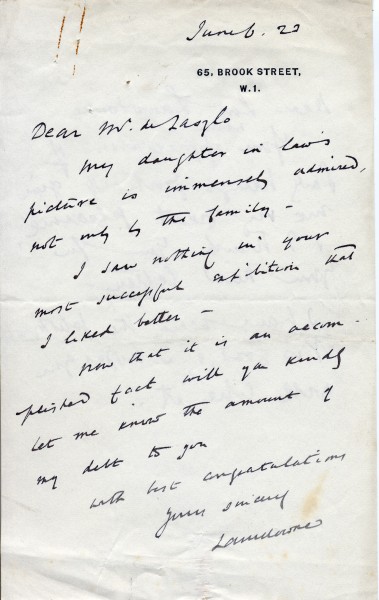 June 6. 23
65, BROOK STREET,
W.1.
Dear Mr. de Laszlo
My daughter in law's
picture is immensely admired,
not only by the family -
I saw nothing in your
most successful exhibition that
I liked better -
now that it is an accom-
plished fact will you kindly
let me know the amount of
my debt to you
with best congratulations
Yours sincerely
Lansdowne